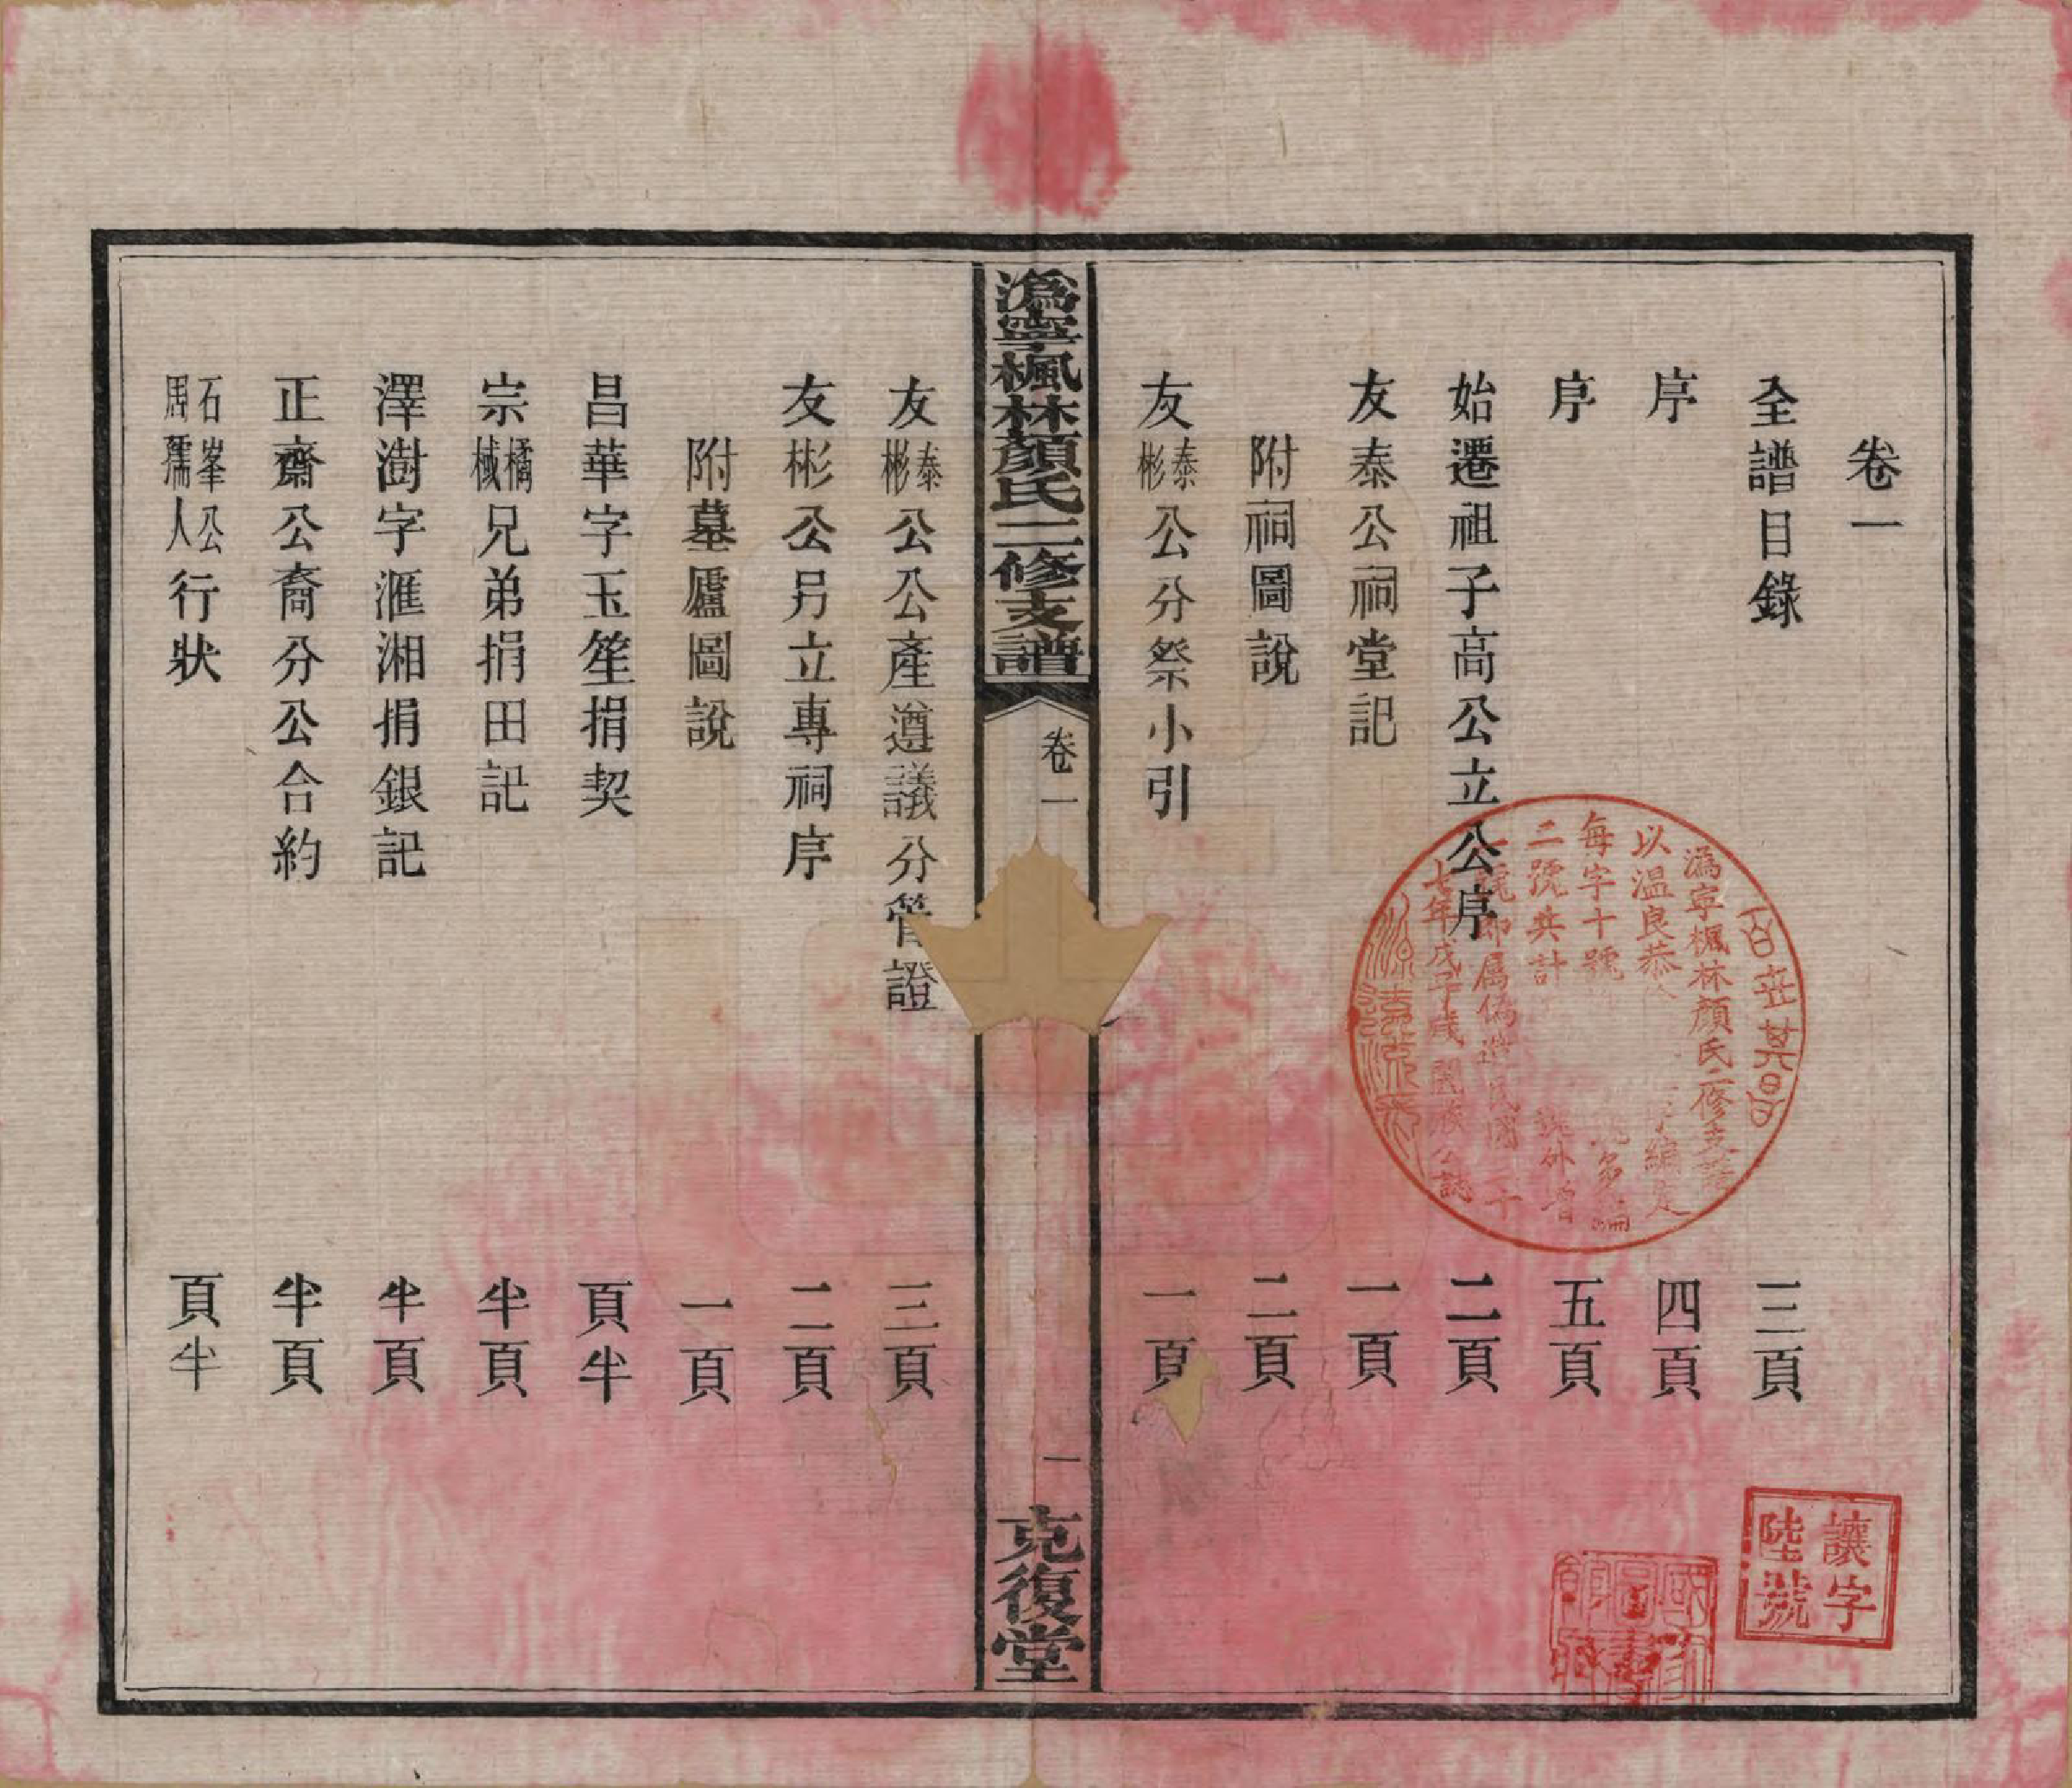 卷一
全譜目錄 三頁
序 四頁
序 五頁
始遷祖子高公立公序 二頁
友泰公祠堂記 一頁
附祠圖說 二頁
友泰彬公分祭小引 一頁
溈寧楓林顏氏二修支譜 卷一 一 克復堂
友泰彬公公產遵議分管證 三頁
友彬公另立專祠序 二頁
附墓廬圖說 一頁
昌華字玉笙捐契 頁半
宗橘棫兄弟捐田記 半頁
澤澍字滙湘捐銀記 半頁
正齋公裔分公合約 半頁
石峯公周孺人行狀 頁半
溈寧楓林顏氏二修支譜
以温良恭 字編定
每字十號 多編
二號共計 號外增
號即属偽造民國三十
七年戊子歲闔族公誌
源遠流長
讓字
陸號